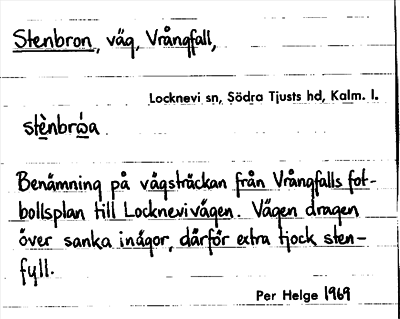 Stenbron, väg, Vrångfall,
Locknevi sn, Södra Tjusts hd, Kalm. l.
stènbrώa.
Benämning på vägsträckan från Vrångfalls fot-
bollsplan till Locknevivägen. Vägen dragen
över sanka inägor, därför extra tjock sten-
fyll.
Per Helge 1969